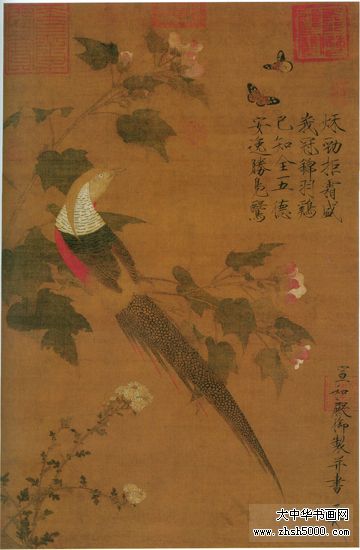 秋勁拒霜盛
峩冠錦羽鷄
已知全五德
安逸勝鳧鷖
宣和殿御製并書
大中华书画网
www.zhsh5000.com